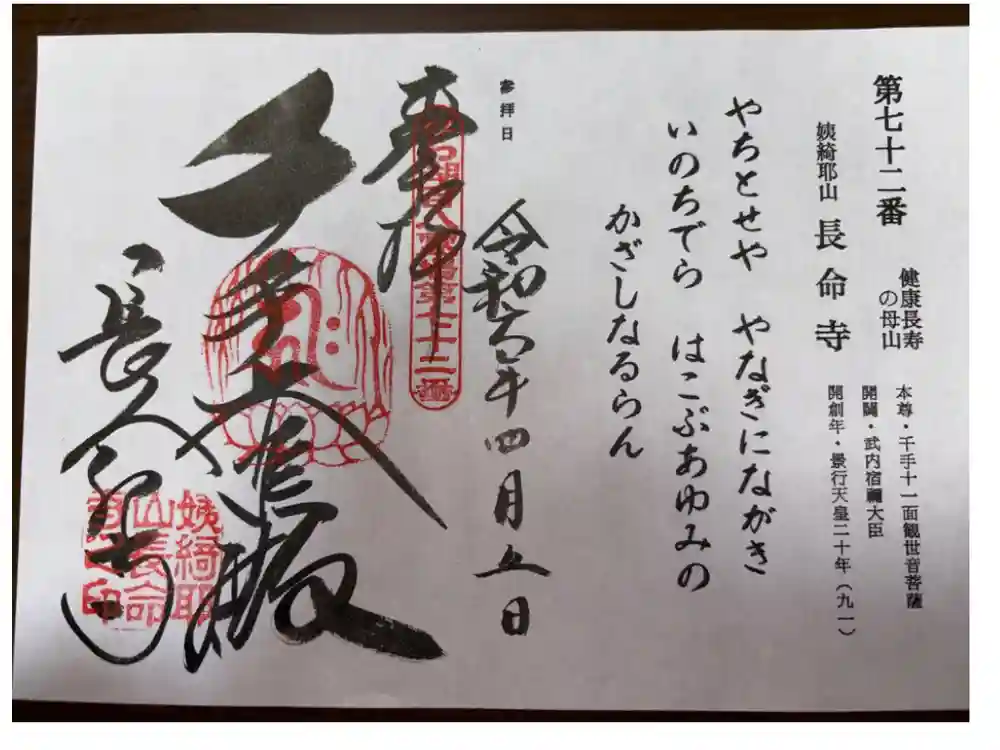 第七十二番
健康長寿
の母山
姨綺耶山 長命寺
本尊・千手十一面観世音菩薩
開闢・武内宿禰大臣
開創年・景行天皇二十年(九一)
やちとせや やなぎにながき
いのちでら はこぶあゆみの
かざしなるらん
参拝日
令和六年四月五日
奉拝
第七十二番
千手大悲殿
長命寺
姨綺耶
山長命
寺之印